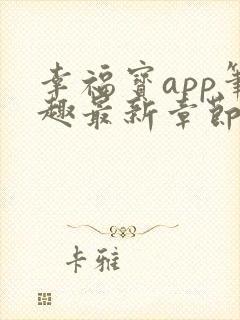 幸福宝app笔
趣最新章节
卡雅